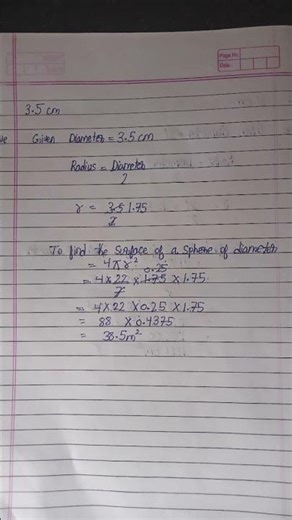 Page No.
Date
3.5 cm
Given Diameter = 3.5 cm
Radius = Diameter
2
r = 3.5 1.75
2
To find the surface of a sphere of diameter
= 4πr²
0.25
= 4 × 22 × 1.75 × 1.75
7
= 4 × 22 × 0.25 × 1.75
= 88 × 0.4375
= 38.5 m²